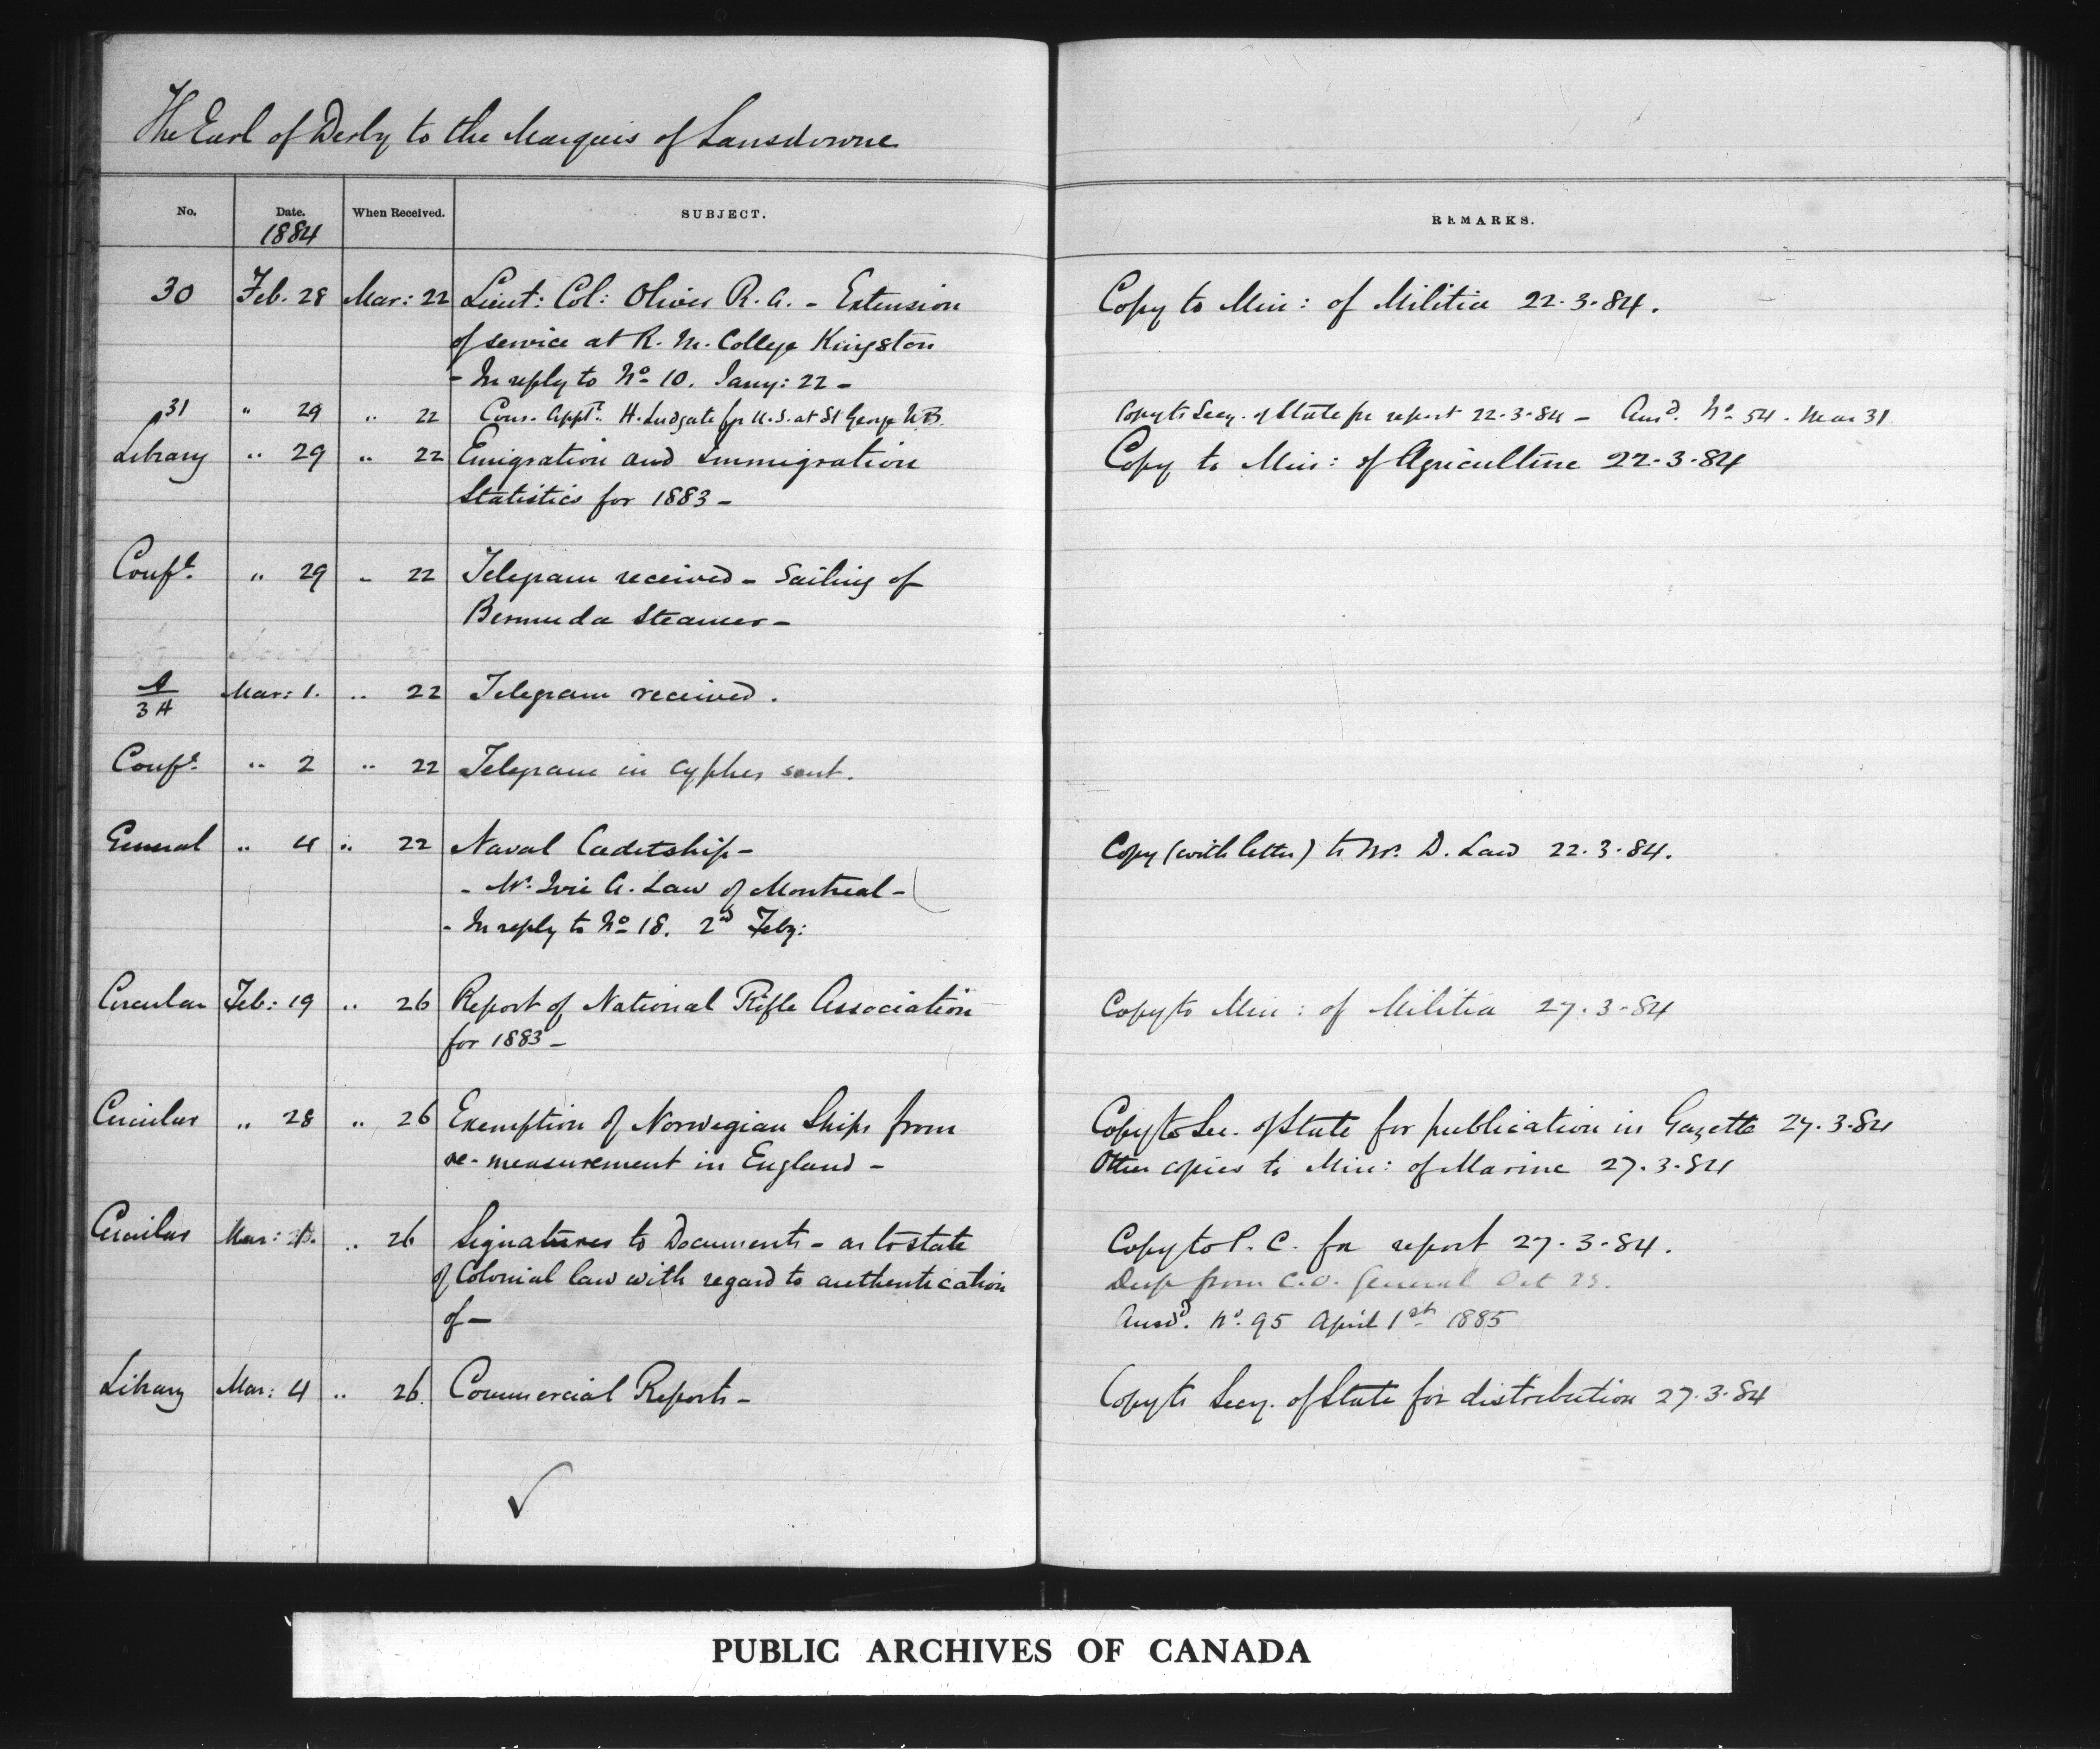 The Earl of Derby to the Marquis of Lansdowne
No. Date. When Received. SUBJECT. REMARKS.
1884
30 Feb. 28 Mar: 22 Lieut: Col: Oliver R. A. - Extension Copy to Min: of Militia 22.3.84.
of service at R. M. College Kingston
- In reply to No 10. Jany: 22 -
31 " 29 " 22 Cons. Appt. H. Ludgate for U.S. at St George N.B. Copy to Secy. of State for report 22-3-84 - Ansd. No 54. Mar 31
Library " 29 " 22 Emigration and Immigration Copy to Min: of Agriculture 22-3-84
Statistics for 1883 -
Confl. " 29 " 22 Telegram received - Sailing of
Bermuda Steamer -
A/34 Mar: 1. " 22 Telegram received.
Confl. " 2 " 22 Telegram in cypher sent.
General " 4 " 22 Naval Cadetship - Copy (with letter) to Mr. D. Law 22.3.84.
- Mr. A. Law of Montreal -
- In reply to No 18. 2nd Feby:
Circular Feb: 19 " 26 Report of National Rifle Association Copy to Min: of Militia 27.3-84
for 1883 -
Circular " 28 " 26 Exemption of Norwegian Ships from Copy to Sec. of State for publication in Gazette 27.3-84
re-measurement in England - Other copies to Min: of Marine 27.3.84
Circular Mar: " 26 Signatures to Documents - as to state Copy to P. C. for report 27-3-84.
of Colonial law with regard to authentication Desp from C.O. General Oct
of - Ansd. No. 95 April 1st 1885
Library Mar: 4 " 26. Commercial Reports - Copy to Secy. of State for distribution 27.3.84
PUBLIC ARCHIVES OF CANADA